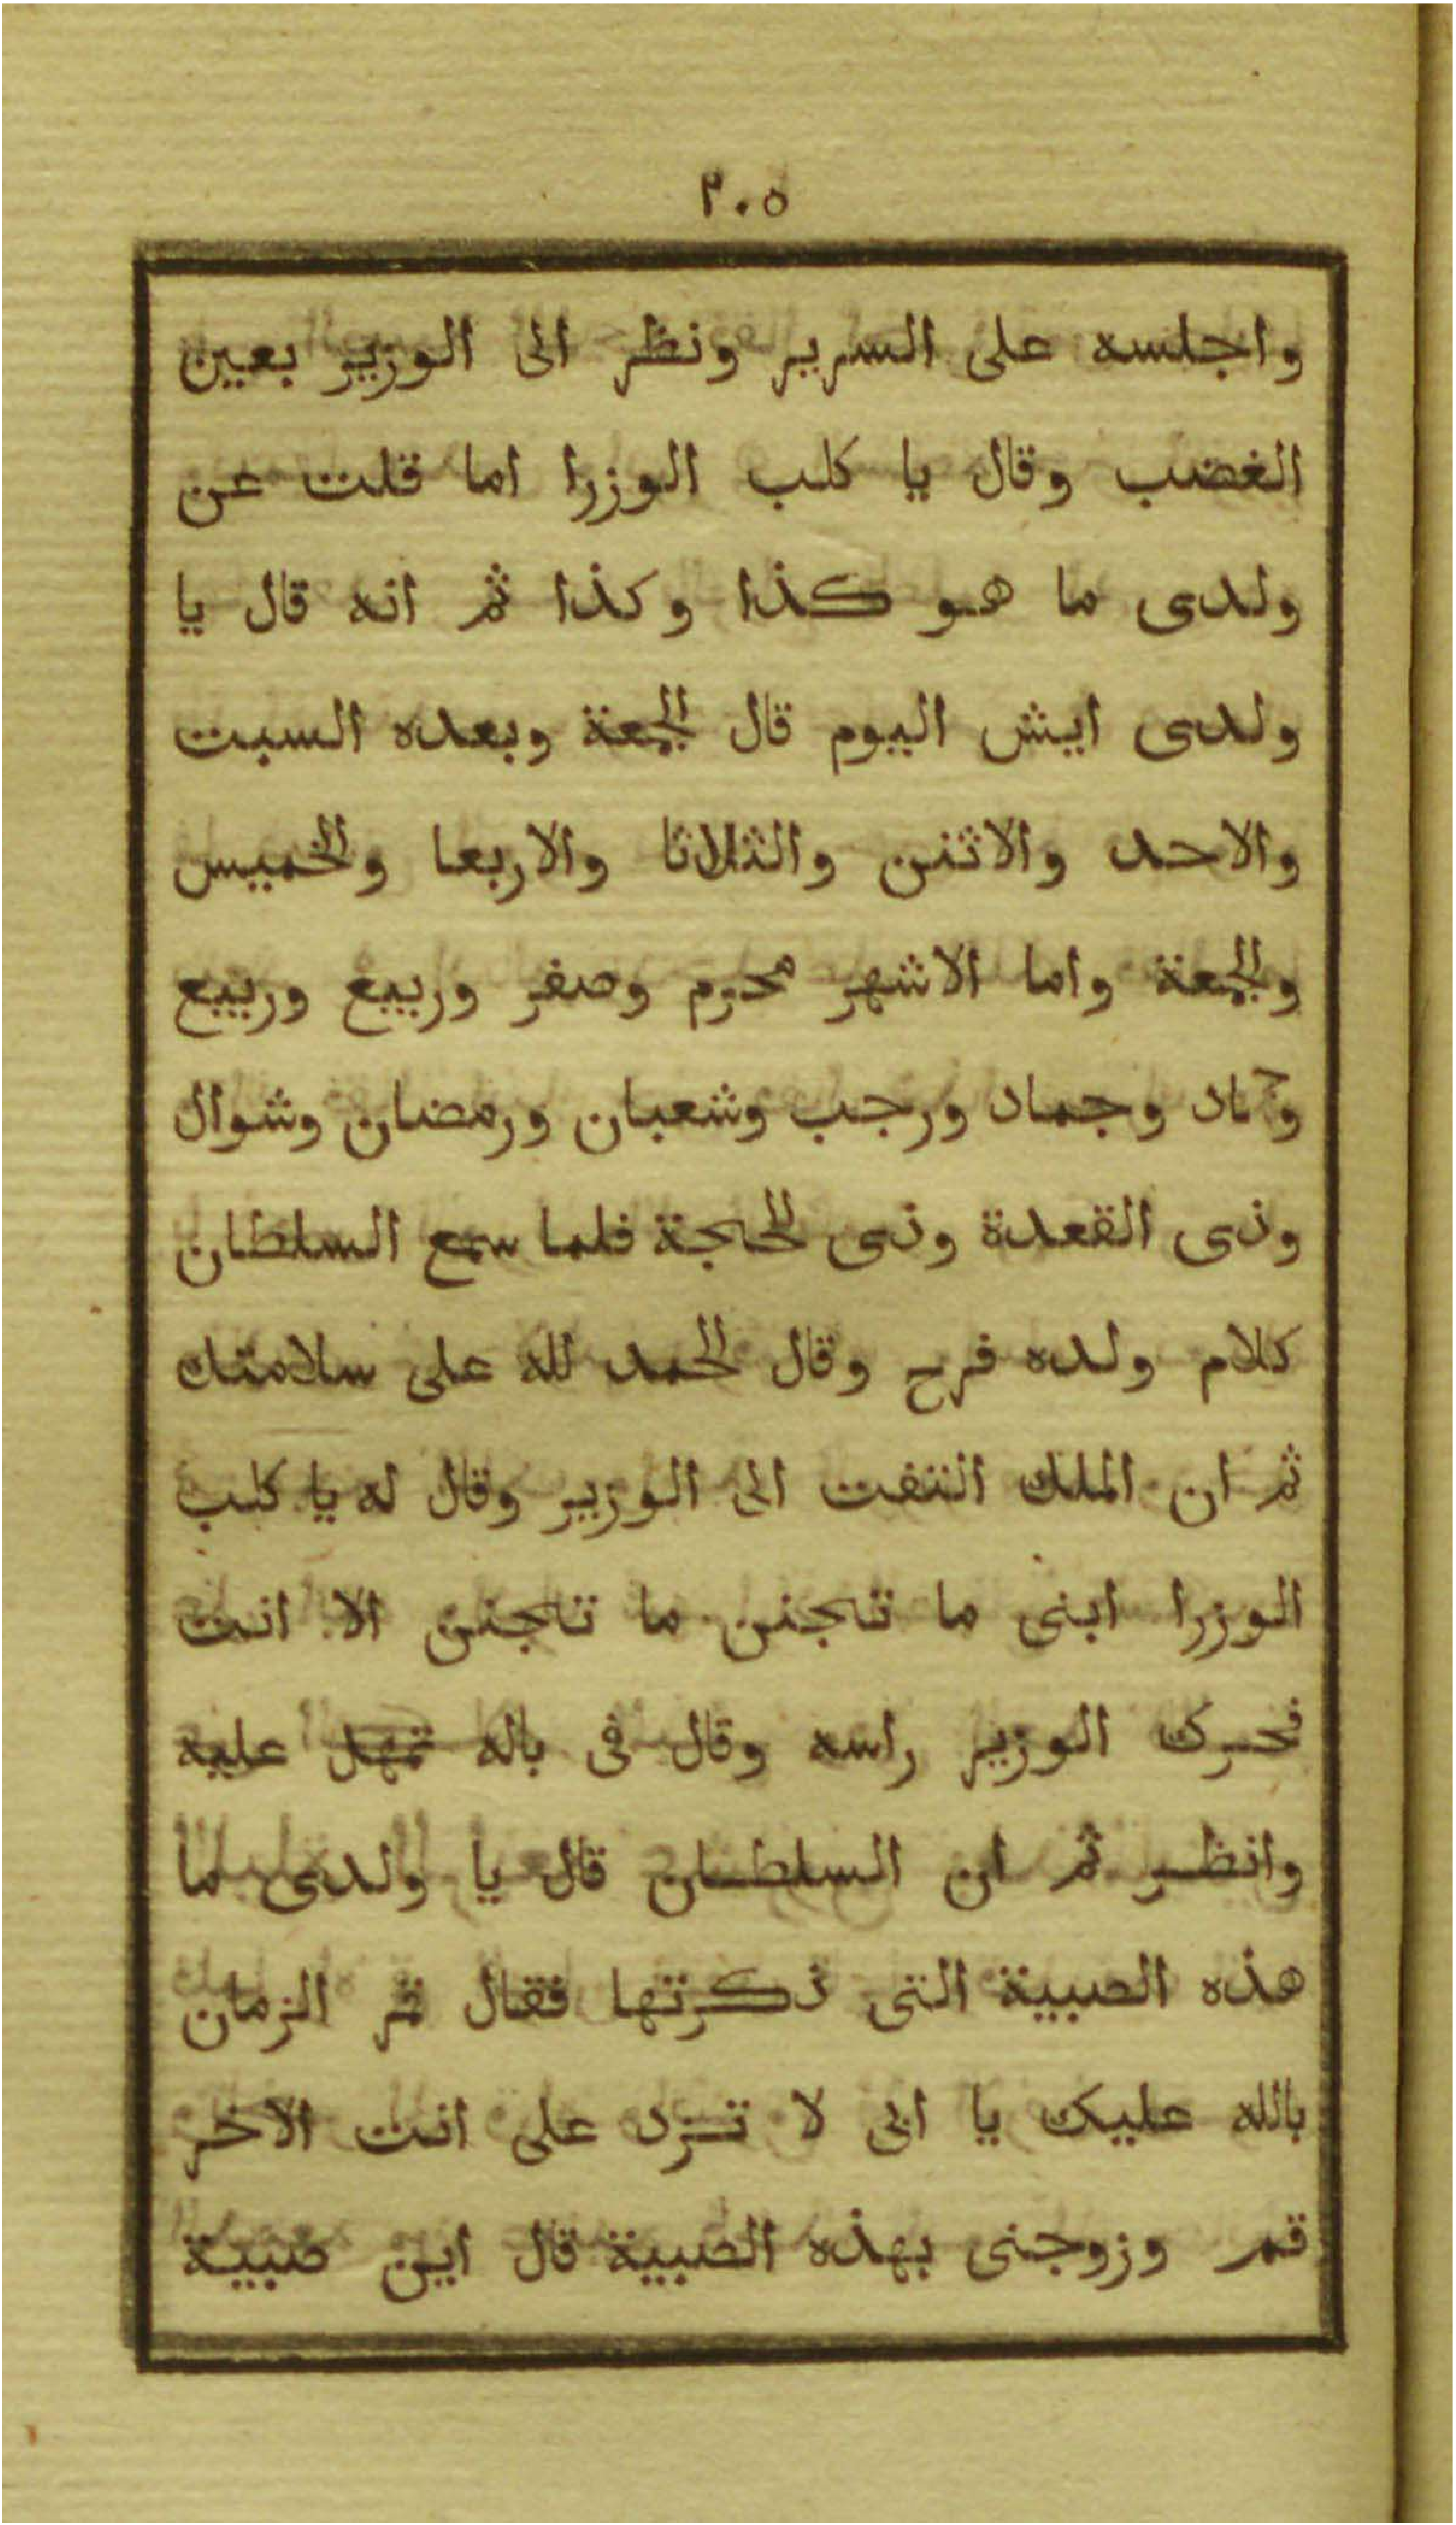 ٢٠٥
واجلسه على السرير ونظر الى الوزير بعين
الغضب وقال يا كلب الوزرا اما قلت عن
ولدى ما هو كذا وكذا ثم انه قال يا
ولدى ايش اليوم قال الجمعة وبعده السبت
والاحد والاثنن والثلاثا والاربعا والخميس
والجمعة واما الاشهر محرم وصفر وربيع وربيع
وجماد وجماد ورجب وشعبان ورمضان وشوال
وذى القعدة وذى الحجة فلما سمع السلطان
كلام ولده فرح وقال الحمد لله على سلامتك
ثم ان الملك التفت الى الوزير وقال له يا كلب
الوزرا ابنى ما تجنن ما تجنن الا انت
فحرك الوزير راسه وقال فى باله تمهل عليه
وانظر ثم ان السلطان قال يا ولدى ما
هذه الصبية التى ذكرتها فقال قمر الزمان
بالله عليك يا ابى لا تزد على انت الاخر
قمر وزوجنى بهذه الصبية قال اين صبية